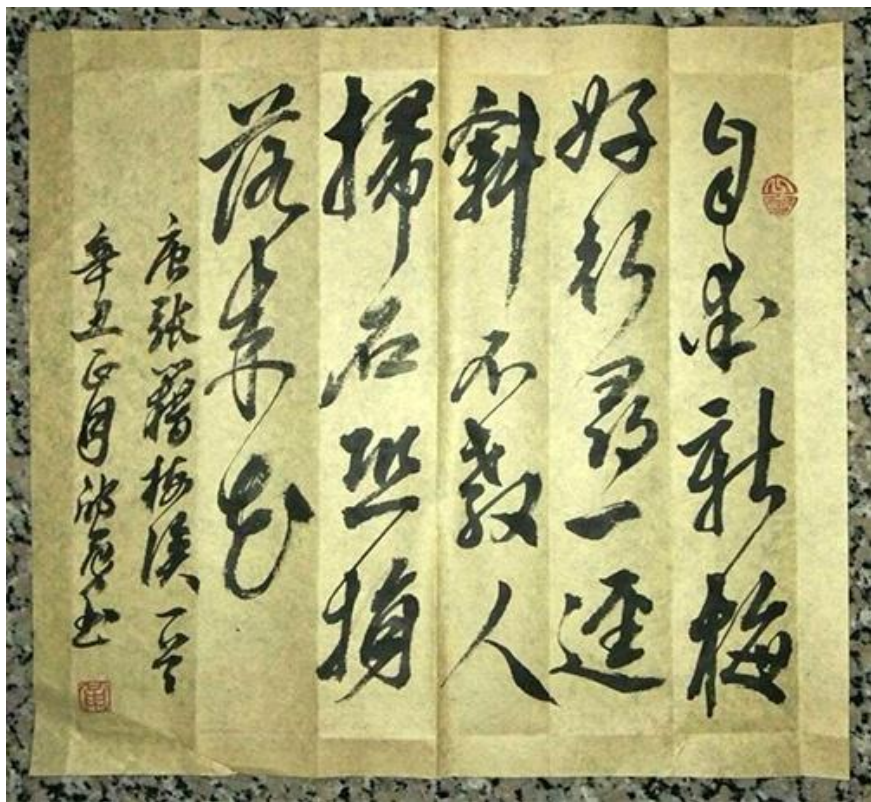 自愛新梅
好行尋一逕
斜不教人
掃石恐損
落來花
唐張籍梅溪一首
辛丑正月